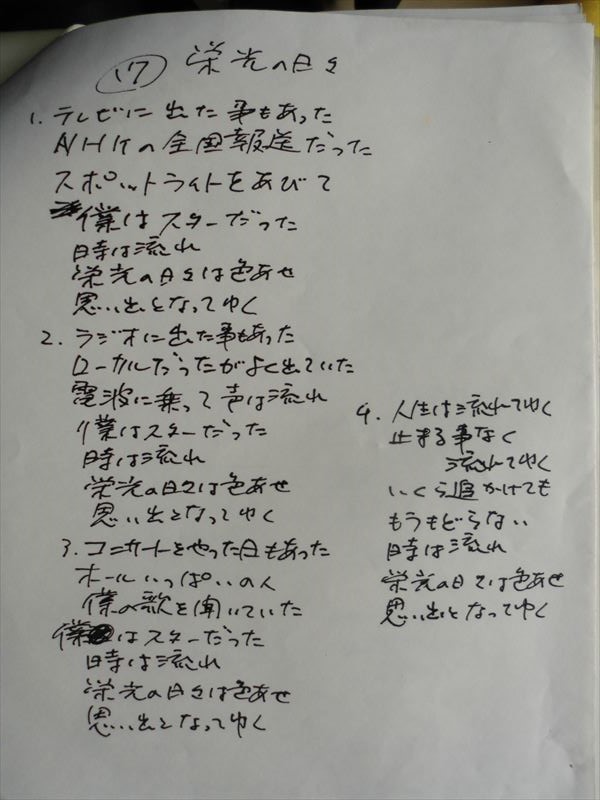 17 栄光の日々
1. テレビに出た事もあった
NHKの全国報送だった
スポットライトをあびて
僕はスターだった
時は流れ
栄光の日々は色あせ
思い出となってゆく
2. ラジオに出た事もあった
ローカルだったがよく出ていた
電波に乗って声は流れ
僕はスターだった
時は流れ
栄光の日々は色あせ
思い出となってゆく
3. コンサートをやった日もあった
ホールいっぱいの人
僕の歌を聞いていた
僕はスターだった
時は流れ
栄光の日々は色あせ
思い出となってゆく
4. 人生は流れてゆく
止まる事なく
流れてゆく
いくら追かけても
もうもどらない
時は流れ
栄光の日々は色あせ
思い出となってゆく